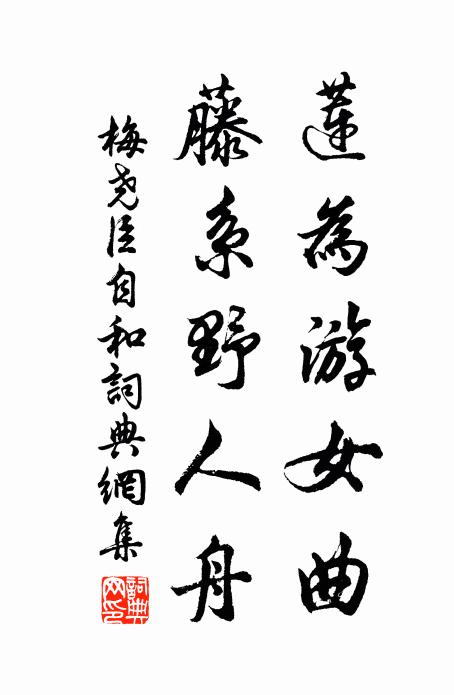 蓮為游女曲
藤系野人舟
梅尧臣自和詞典網集
詞典網印